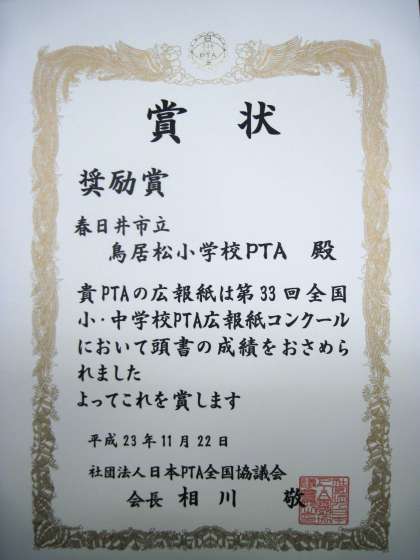 日
PTA
賞 状
奨励賞
春日井市立
鳥居松小学校PTA 殿
貴PTAの広報紙は第33回全国
小・中学校PTA広報紙コンクール
において頭書の成績をおさめら
れました
よってこれを賞します
平成23年11月22日
社団法人日本PTA全国協議会
会長 相川 敬